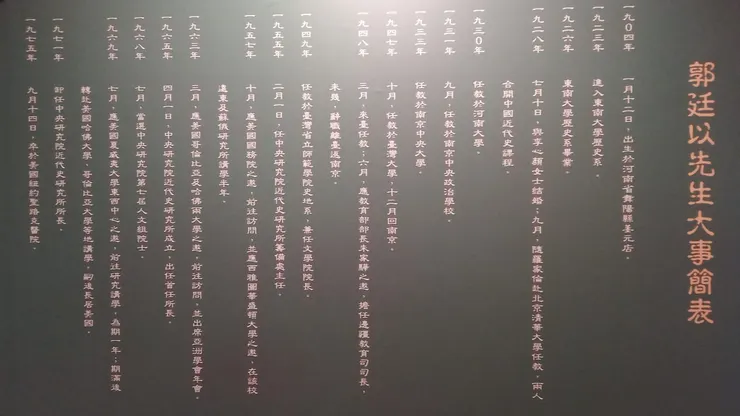 郭廷以先生大事簡表
一九0四年 一月十二日，出生於河南省舞陽縣姜元店。
一九二三年 進入東南大學歷史系。
一九二六年 東南大學歷史系畢業。
一九二八年 七月十日，與李心顏女士結婚；九月，隨羅家倫赴北京清華大學任教，兩人
合開中國近代史課程。
一九三0年 任教於河南大學。
一九三一年 九月，任教於南京中央政治學校。
一九三三年 任教於南京中央大學。
一九四七年 十月，任教於臺灣大學，十二月回南京。
一九四八年 三月，來臺任教；六月，應教育部部長朱家驊之邀，擔任邊疆教育司司長，
未幾，辭職離臺返南京。
一九四九年 任教於臺灣省立師範學院史地系，兼任文學院院長。
一九五五年 二月一日，任中央研究院近代史研究所籌備處主任。
一九五七年 十月，應美國國務院之邀，前往訪問，並應西雅圖華盛頓大學之邀，在該校
遠東及蘇俄研究所講學半年。
一九六三年 三月，應美國哥倫比亞及哈佛兩大學之邀，前往訪問，並出席亞洲學會年會。
一九六五年 四月一日，中央研究院近代史研究所成立，出任首任所長。
一九六八年 七月，當選中央研究院第七屆人文組院士。
一九六九年 七月，應美國夏威夷大學東西中心之邀，前往研究講學，為期一年；期滿後
轉赴美國哈佛大學、哥倫比亞大學等地講學，嗣後長居美國。
一九七一年 卸任中央研究院近代史研究所所長。
一九七五年 九月十四日，卒於美國紐約聖路克醫院。